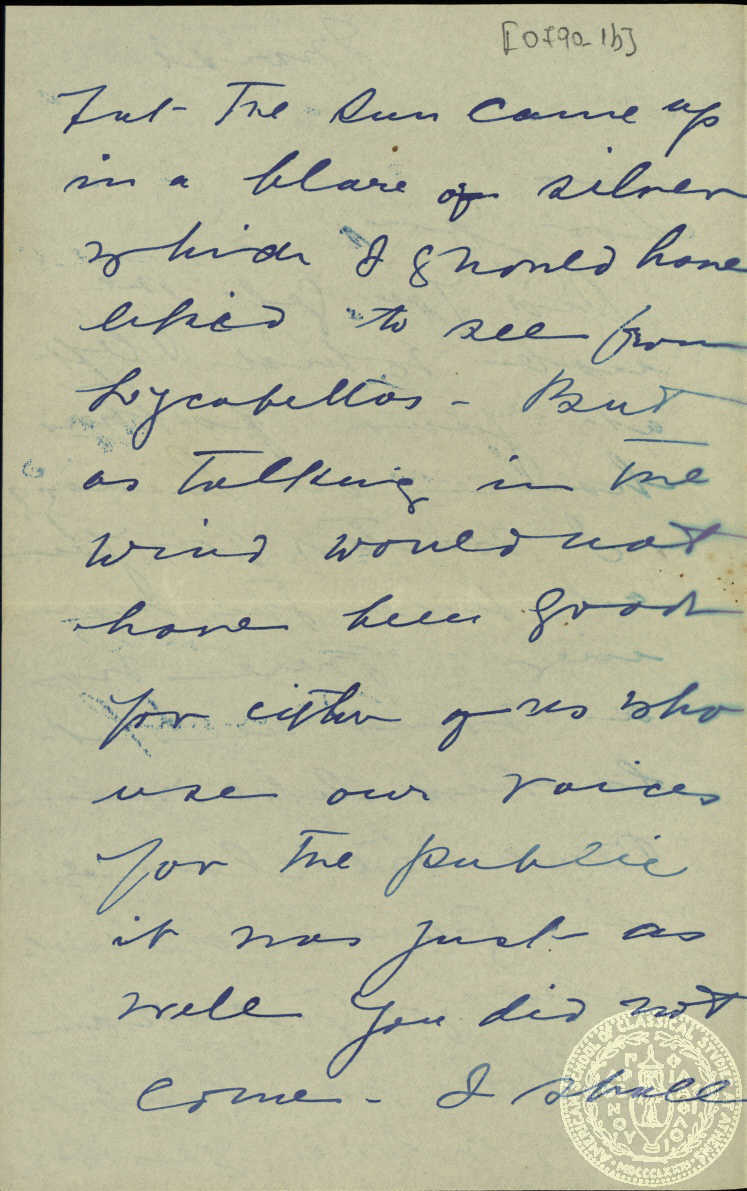 but the sun came up
in a blaze of silver
which I should have
liked to see from
Lycabettos - But
as talking in the
wind would not
have been good
for either of us who
use our voices
for the public
it was just as
well you did not
come - I shall
AMERICAN SCHOOL OF CLASSICAL STUDIES AT ATHENS
MDCCCLXXXI